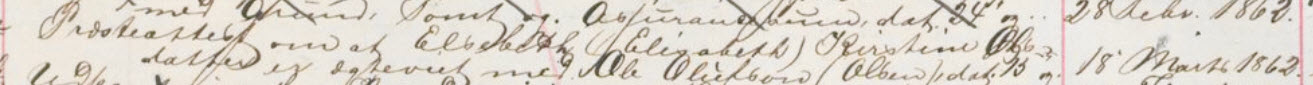 med Grund, Tomt og Assuransesum, dat. 24 og 28 Febr. 1862.
Præsteattest om at Elsebeth (Elisabeth) Kirstine Ols-
datter er ægteviet med Ole Olietson (Olsen), dat. 15 og 18 Marts 1862.